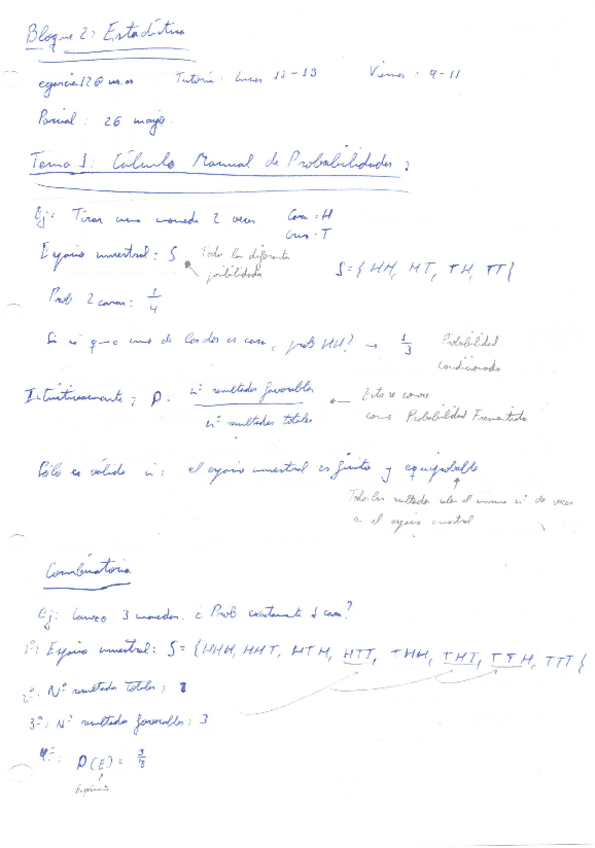 Bloque 2: Estadística
egarcia12@us.es Tutoria: Lunes 11-13 Viernes: 9-11
Parcial: 26 mayo.
Tema 1: Cálculo Manual de Probabilidades:
Ej: Tirar una moneda 2 veces Cara: H
Cruz: T
Espacio muestral: S Todas las diferentes posibilidades S = { HH, HT, TH, TT }
Prob 2 caras: 1/4
Si sé que una de las dos es cara, ¿prob HH? → 1/3 Probabilidad Condicionada
Intuitivamente, P: nº resultados favorables / nº resultados totales Esto se conoce como Probabilidad Frecuentista
Sólo es válido si: el espacio muestral es finito y equiprobable
Todos los resultados salen el mismo nº de veces
en el espacio muestral
Combinatoria
Ej: Lanzo 3 monedas. ¿Prob exactamente 1 cara?
1º: Espacio muestral: S = { HHH, HHT, HTH, HTT, THH, THT, TTH, TTT }
2º: Nº resultados totales: 8
3º: Nº resultados favorables: 3
4º: P(E) = 3/8